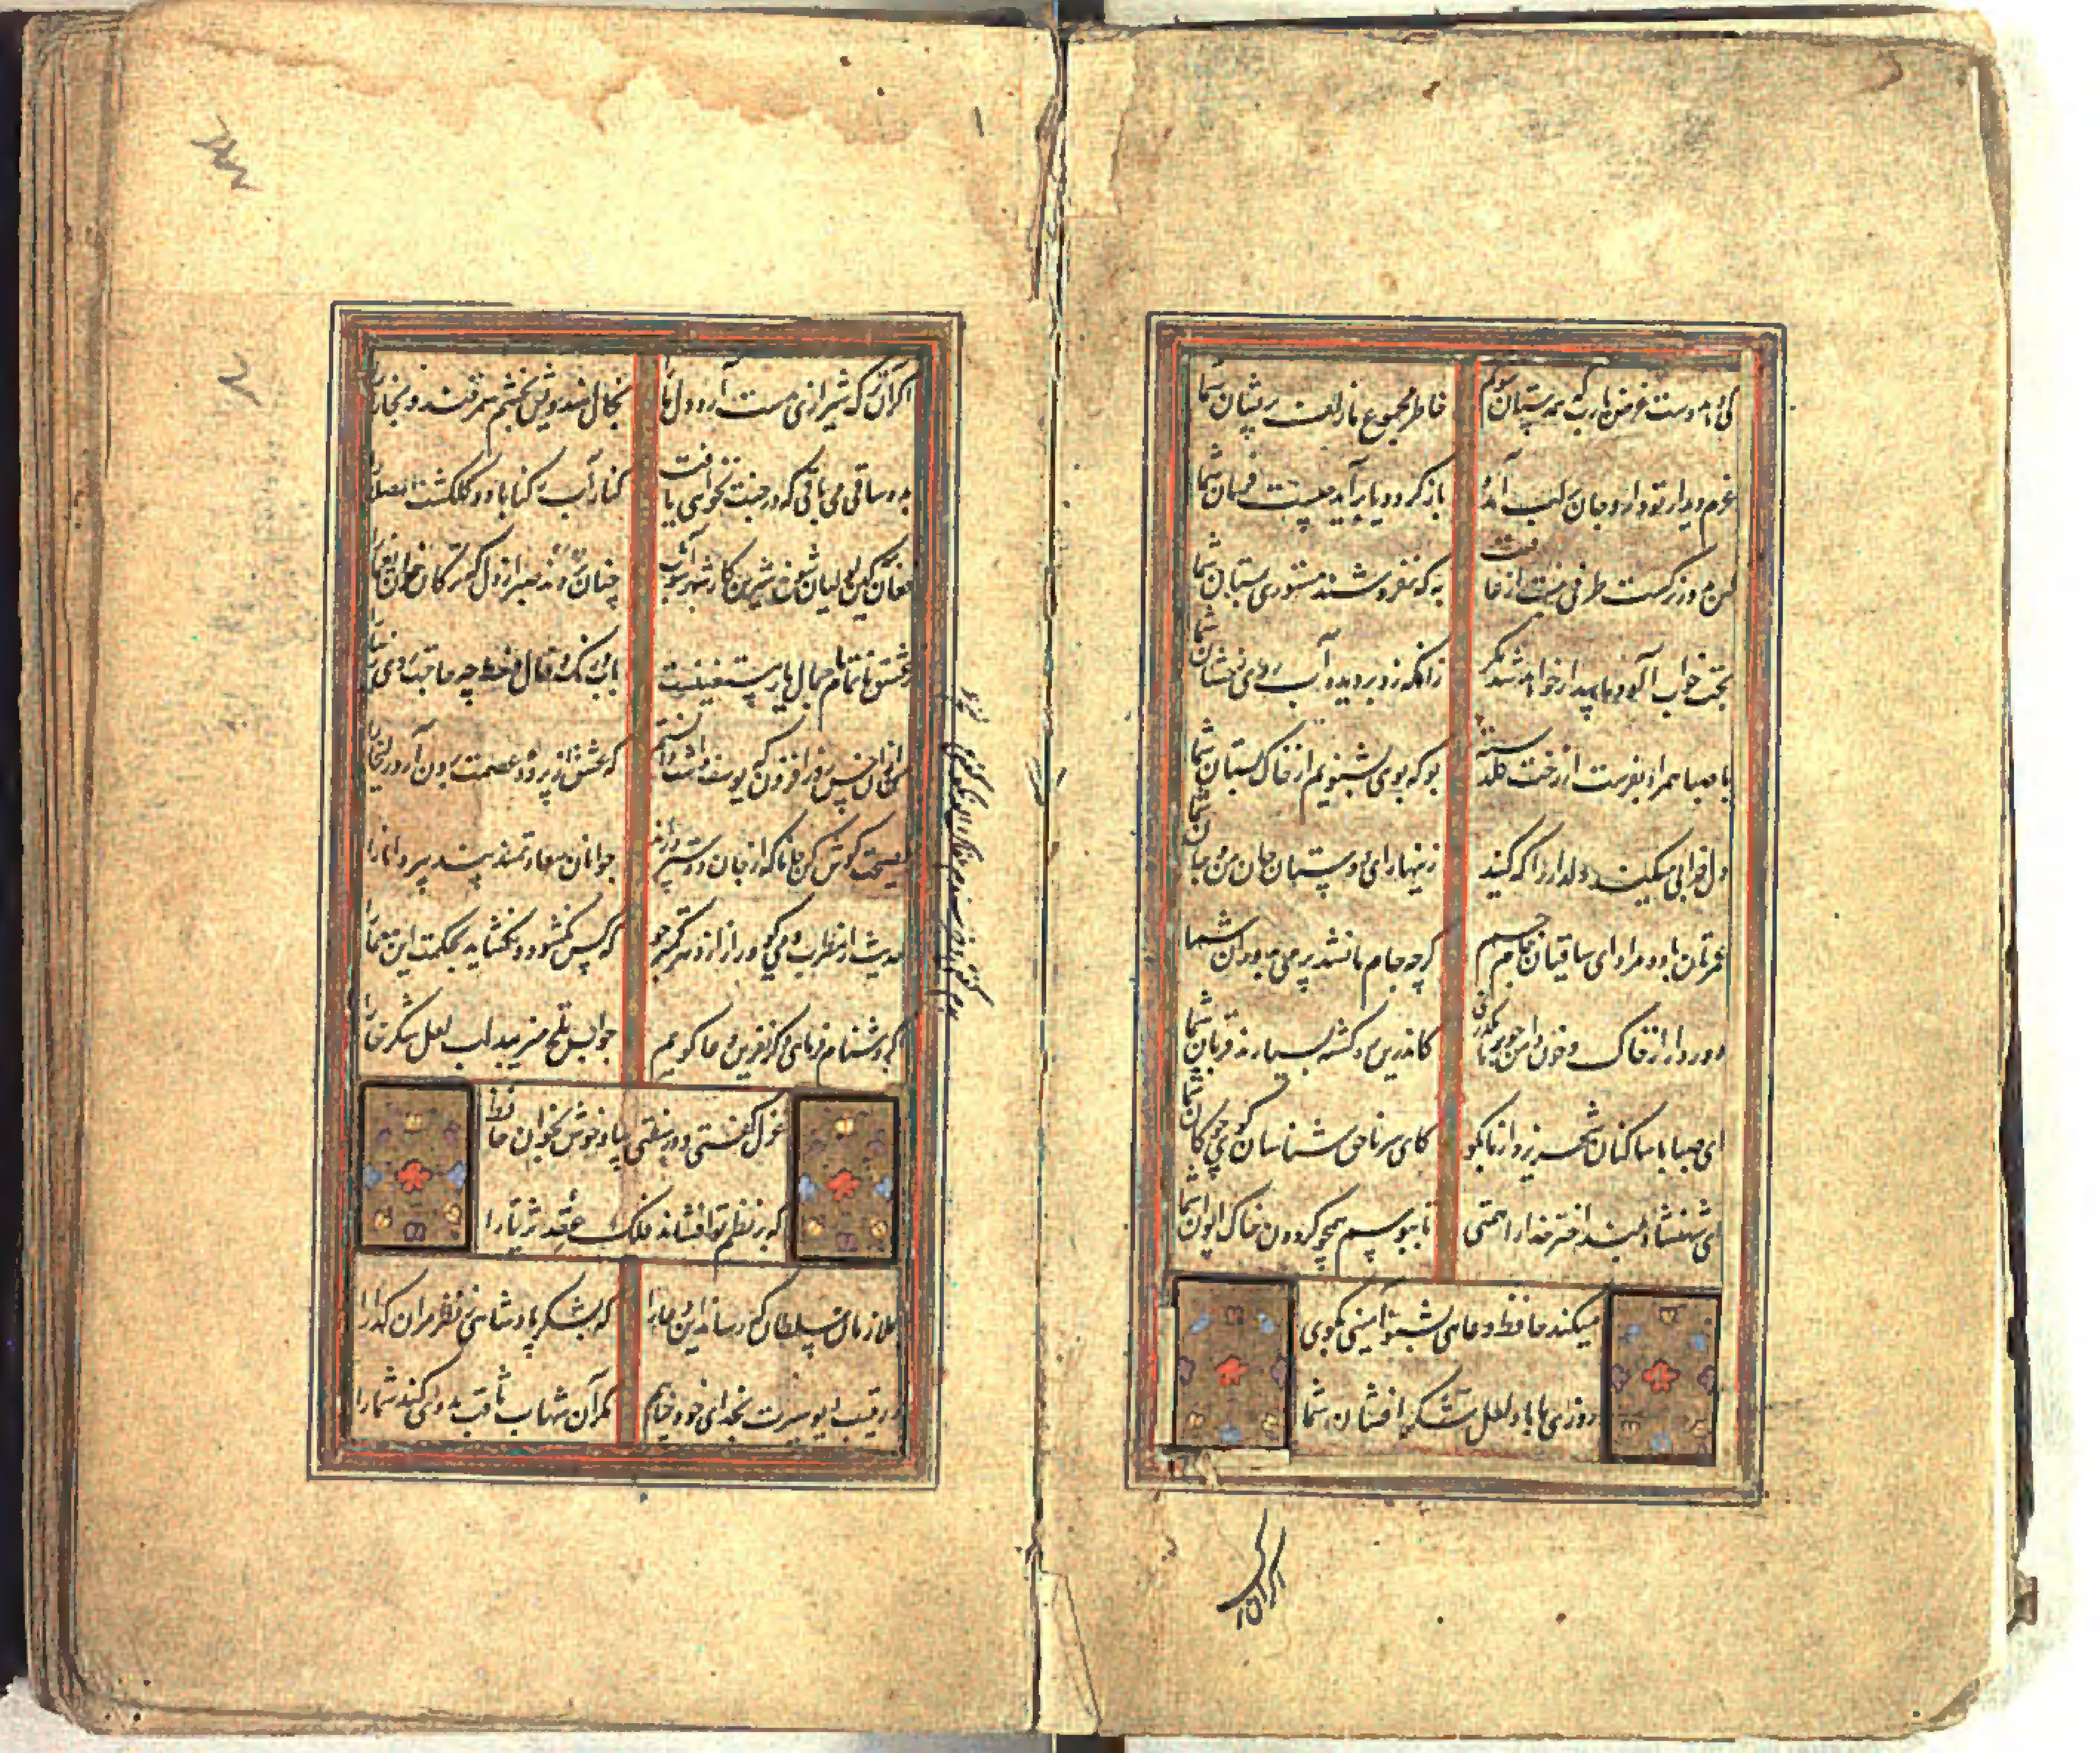 کی دهد دست این غرض یا رب که همدستان شوند خاطر مجموع ما زلف پریشان شما
عزم دیدار تو دارد جان بلب آمده بازگردد یا برآید چیست فرمان شما
کس بدور نرگست طرفی نبست از عافیت به که نفروشند مستوری بمستان شما
بخت خواب آلود ما بیدار خواهد شد مگر زانکه زد بر دیده آب روی رخشان شما
با صبا همراه بفرست از رخت گلدسته بو که بوی بشنویم از خاک بستان شما
دل خرابی میکند دلدار را آگه کنید زینهار ای دوستان جان من و جان شما
عمرتان باد و مراد ای ساقیان بزم جم گرچه جام ما نشد پر می بدوران شما
دور دار از خاک و خون دامن چو بر ما بگذری کاندرین ره کشته بسیارند قربان شما
ای صبا با ساکنان شهر یزد از ما بگو کای سر ناحق شناسان گوی چوگان شما
ای شهنشاه بلند اختر خدا را همتی تا ببوسم همچو گردون خاک ایوان شما
میکند حافظ دعایی بشنو آمینی بگوی
روزی ما باد لعل شکر افشان شما
اگر آن
اگر آن ترک شیرازی بدست آرد دل ما را بخال هندویش بخشم سمرقند و بخارا را
بده ساقی می باقی که در جنت نخواهی یافت کنار آب رکناباد و گلگشت مصلا را
فغان کین لولیان شوخ شیرین کار شهرآشوب چنان بردند صبر از دل که ترکان خوان یغما را
ز عشق ناتمام ما جمال یار مستغنیست بآب و رنگ و خال و خط چه حاجت روی زیبا را
من از آن حسن روز افزون که یوسف داشت دانستم که عشق از پرده عصمت برون آرد زلیخا را
نصیحت گوش کن جانا که از جان دوستتر دارند جوانان سعادتمند پند پیر دانا را
حدیث از مطرب و می گو و راز دهر کمتر جو که کس نگشود و نگشاید بحکمت این معما را
اگر دشنام فرمایی و گر نفرین دعا گویم جواب تلخ میزیبد لب لعل شکرخا را
غزل گفتی و در سفتی بیا و خوش بخوان حافظ
که بر نظم تو افشاند فلک عقد ثریا را
بملازمان سلطان که رساند این دعا را که بشکر پادشاهی ز نظر مران گدا را
ز رقیب دیو سیرت بخدای خود پناهم مگر آن شهاب ثاقب مددی کند شما را